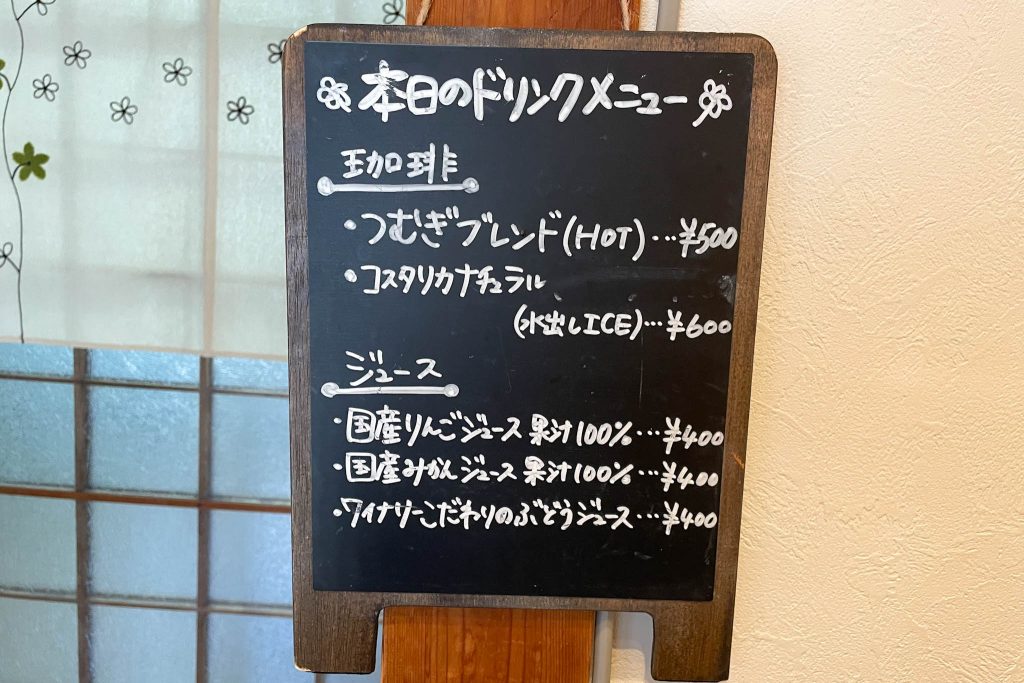 本日のドリンクメニュー
珈琲
・つむぎブレンド(HOT)…¥500
・コスタリカナチュラル
(水出しICE)…¥600
ジュース
・国産りんごジュース 果汁100%…¥400
・国産みかんジュース 果汁100%…¥400
・ワイナリーこだわりのぶどうジュース…¥400